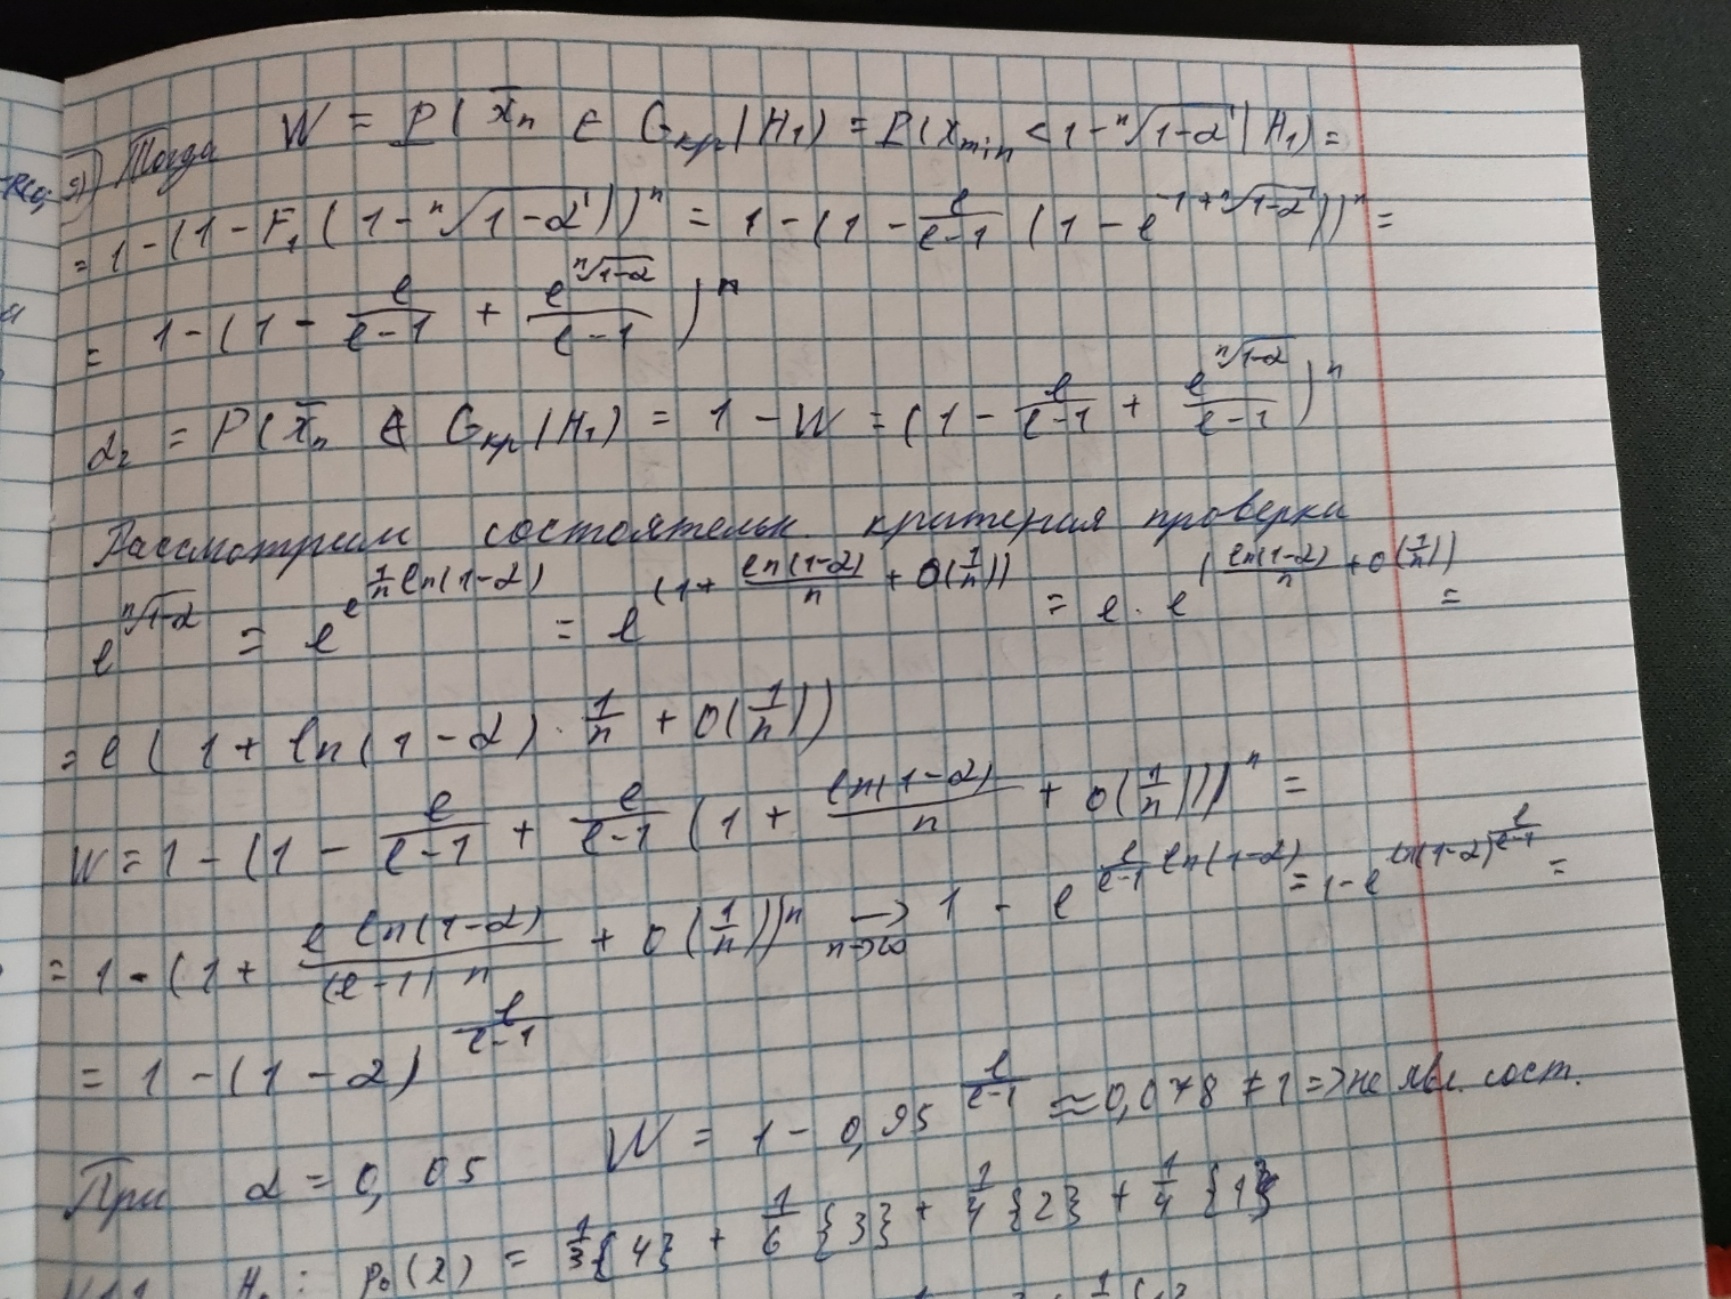 я) Тогда W = P( x̄ₙ ∈ Gкр | H₁) = P(xmin < 1 - ⁿ√(1-α) | H₁) =
= 1 - (1 - F₁(1 - ⁿ√(1-α)))ⁿ = 1 - (1 - e/(e-1) (1 - e^(-1+ⁿ√(1-α))))ⁿ =
= 1 - (1 - e/(e-1) + e^(ⁿ√(1-α))/(e-1))ⁿ
α₂ = P( x̄ₙ ∉ Gкр | H₁) = 1 - W = (1 - e/(e-1) + e^(ⁿ√(1-α))/(e-1))ⁿ
Рассмотрим состоятельн. критерия проверки
e^(ⁿ√(1-α)) = e^(e^(1/n ln(1-α))) = e^((1 + ln(1-α)/n + o(1/n))) = e · e^((ln(1-α)/n + o(1/n))) =
= e (1 + ln(1-α) · 1/n + o(1/n))
W = 1 - (1 - e/(e-1) + e/(e-1) (1 + ln(1-α)/n + o(1/n)))ⁿ =
= 1 - (1 + e ln(1-α)/((e-1) n) + o(1/n))ⁿ →(n→∞) 1 - e^(e/(e-1) ln(1-α)) = 1 - e^(ln(1-α)^(e/(e-1))) =
= 1 - (1-α)^(e/(e-1))
При α = 0,05 W = 1 - 0,95^(e/(e-1)) ≈ 0,078 ≠ 1 => не явл. сост.
H₀ : p₀(x) = 1/3{4} + 1/6{3} + 1/4{2} + 1/4{1}